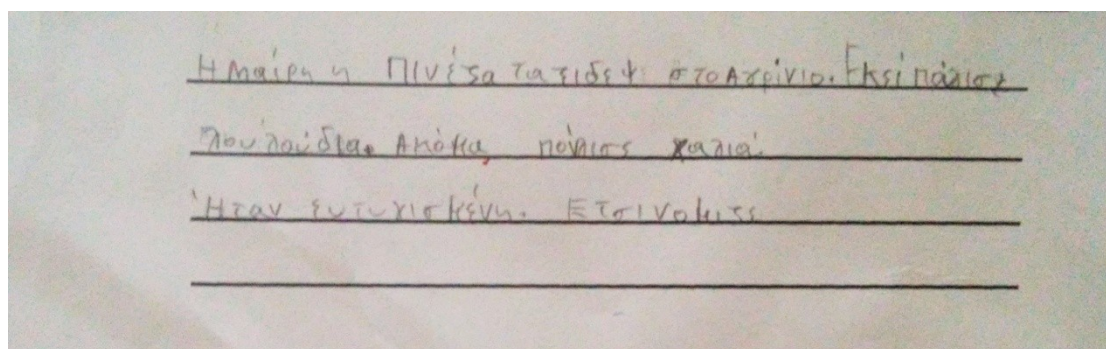 Η Μαίρη η Πινέζα ταξιδεψ στο Αγρίνιο. Εκεί πόλισε
λουλούδια. Ακόμα, πόλισε χαλιά.
Ήταν ευτυχισμένη. Ετσι νομιζε